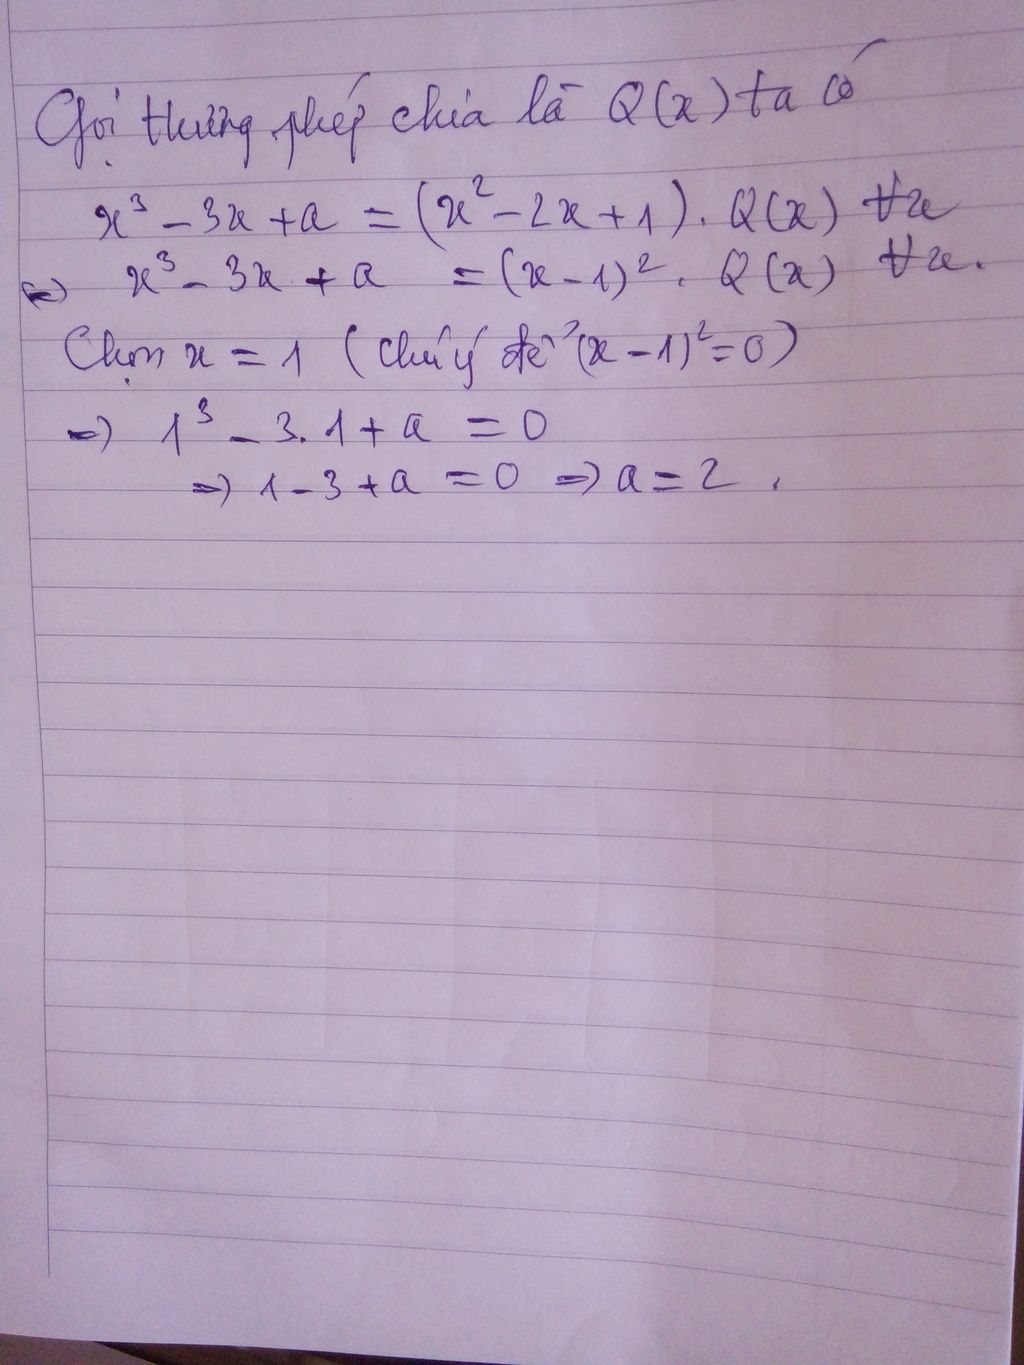 Gọi thương phép chia là Q(x) ta có
x³ - 3x + a = (x² - 2x + 1). Q(x) ∀x
<=> x³ - 3x + a = (x - 1)². Q(x) ∀x.
Chọn x = 1 (chú ý để (x - 1)² = 0)
=> 1³ - 3.1 + a = 0
=> 1 - 3 + a = 0 => a = 2.